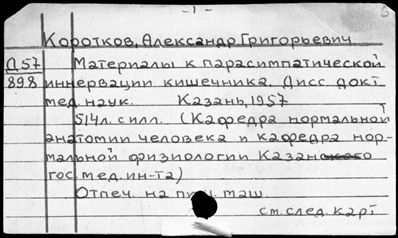 - 1 -
Коротков, Александр Григорьевич
Д57 Материалы к парасимпатической
898 иннервации кишечника. Дисс. докт.
мед. наук. Казань, 1957
514л. с илл. (Кафедра нормальной
анатомии человека и кафедра нор-
мальной физиологии Казанского
гос. мед. ин-та)
Отпеч. на пиш. маш.
см. след. карт